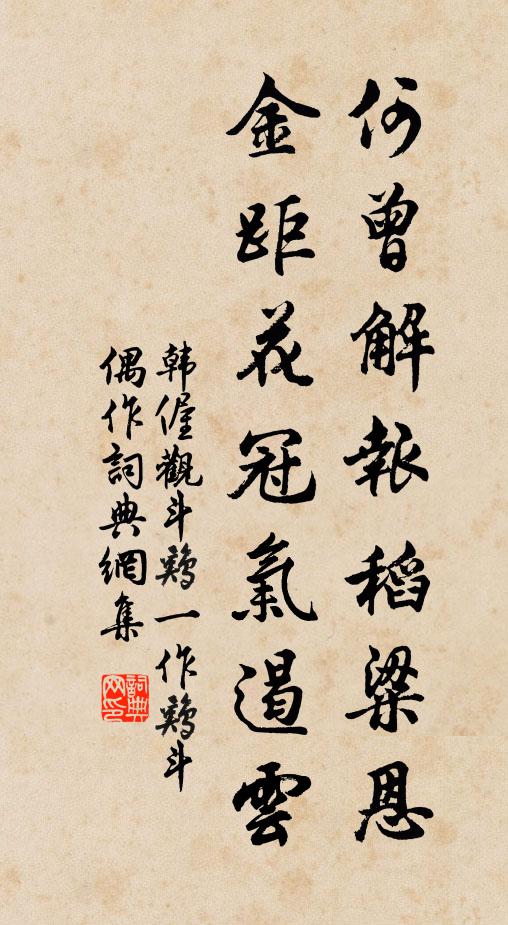 何曾解報稻粱恩
金距花冠氣遏雲
韓偓觀斗鷄一作鷄斗
偶作詞典網集
詞典
网印